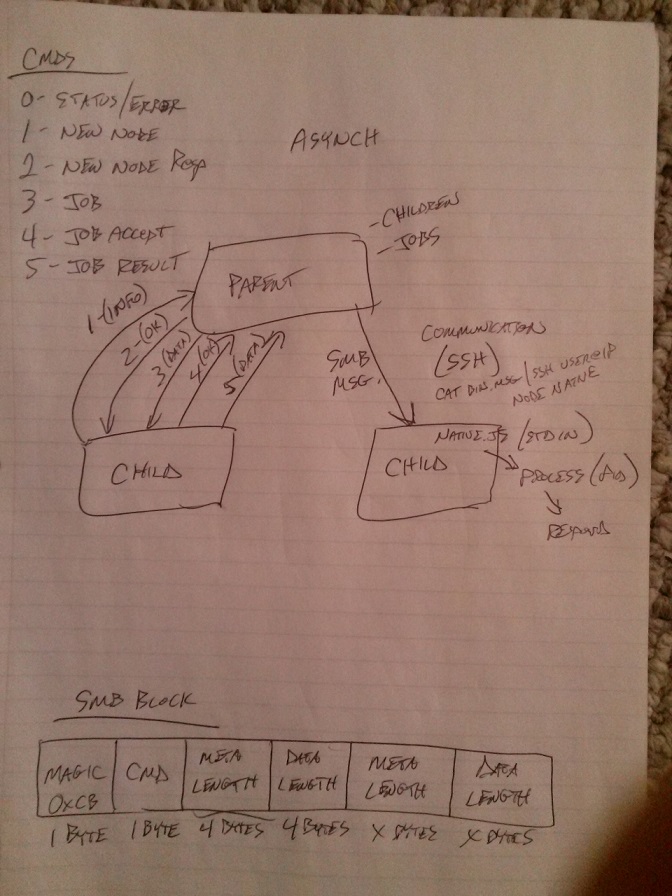 CMDS
0- STATUS/ERROR
1- NEW NODE
2- NEW NODE Resp
3- JOB
4- JOB ACCEPT
5- JOB RESULT
ASYNCH
- CHILDREN
- JOBS
PARENT
1-(INFO)
2-(OK)
3 (DATA)
4 (OK)
5 (DATA)
CHILD
SMB
MSG.
COMMUNICATION
(SSH)
CAT BIN.MSG | SSH USER@IP
NODE NATIVE
NATIVE.JS (STDIN)
CHILD
PROCESS
RESPOND
SMB BLOCK
MAGIC
0xCB
CMD
META
LENGTH
DATA
LENGTH
META
LENGTH
DATA
LENGTH
1 BYTE 1 BYTE 4 BYTES 4 BYTES X BYTES X BYTES